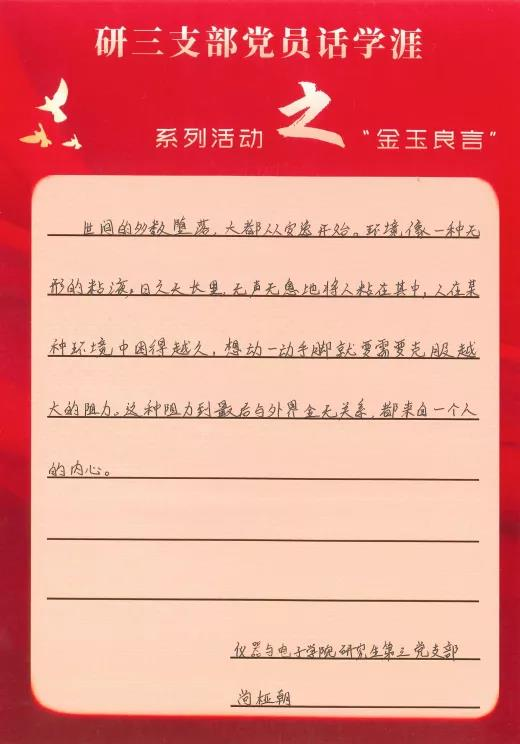 研三支部党员话学涯
系列活动 之 “金玉良言”
世间的多数堕落，大都从安逸开始。环境像一种无
形的粘液，日久天长里，无声无息地将人粘在其中，人在某
种环境中困得越久，想动一动手脚就要需要克服越
大的阻力。这种阻力到最后与外界全无关系，都来自一个人
的内心。
仪器与电子学院研究生第三党支部
尚桠朝